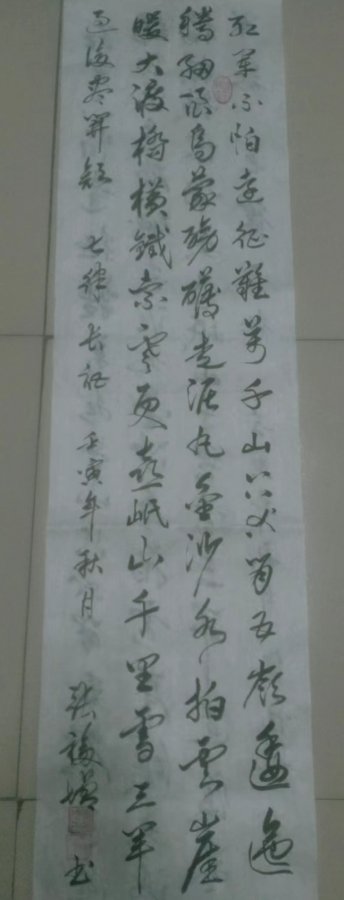 红军不怕远征難萬千山只等闲五嶺逶迤
腾细浪烏蒙磅礴走泥丸金沙水拍雲崖
暖大渡橋横鐵索寒更喜岷山千里雪三军
过後尽開颜 七律 长征 壬寅年秋月 张 书